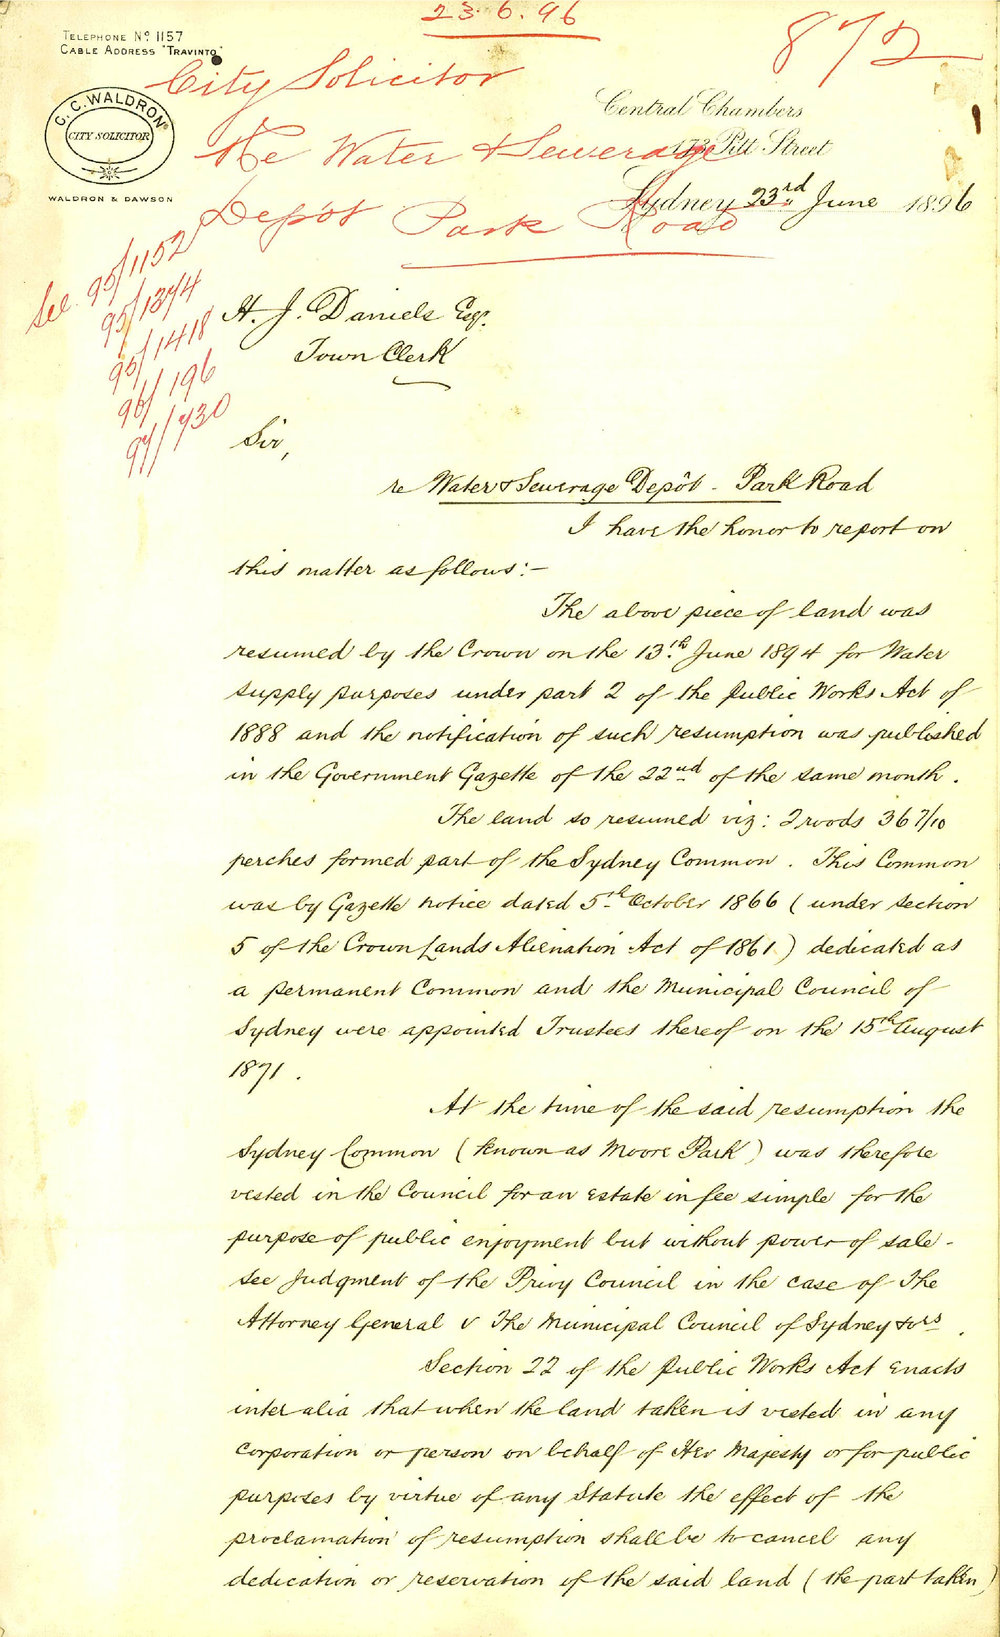 23.6.96
872
TELEPHONE No 1157
CABLE ADDRESS "TRAVINTO"
City Solicitor
re Water & Sewerage
Depôt Park Road
C. C. WALDRON
CITY SOLICITOR
WALDRON & DAWSON
Central Chambers
173 Pitt Street
Sydney 23rd June 1896
See 95/1152
95/1374
95/1418
96/196
97/730
H. J. Daniels Esqr.
Town Clerk
Sir,
re Water & Sewerage Depôt - Park Road
I have the honor to report on
this matter as follows:-
The above piece of land was
resumed by the Crown on the 13th June 1894 for Water
supply purposes under part 2 of the Public Works Act of
1888 and the notification of such resumption was published
in the Government Gazette of the 22nd of the same month.
The land so resumed viz: 2 roods 36 7/10
perches formed part of the Sydney Common. This Common
was by Gazette notice dated 5th October 1866 (under section
5 of the Crown Lands Alienation Act of 1861) dedicated as
a permanent Common and the Municipal Council of
Sydney were appointed Trustees thereof on the 15th August
1871.
At the time of the said resumption the
Sydney Common (known as Moore Park) was therefore
vested in the Council for an estate in fee simple for the
purpose of public enjoyment but without power of sale -
see Judgment of the Privy Council in the case of The
Attorney General v The Municipal Council of Sydney & ors.
Section 22 of the Public Works Act enacts
inter alia that when the land taken is vested in any
corporation or person on behalf of Her Majesty or for public
purposes by virtue of any Statute the effect of the
proclamation of resumption shall be to cancel any
dedication or reservation of the said land (the part taken)